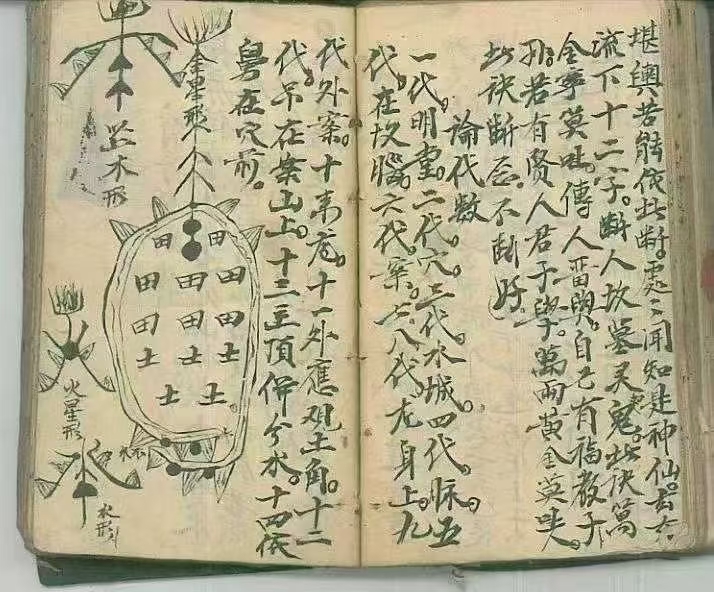 堪輿若能依此断。處二闻知是神仙。去六
流下十二字。断人坟墓灵鬼。此诀萬
金寧莫吐。傳人畱與。自己有福教子
孙。若有贤人君子學。萬両黄金莫
此诀断。不断好。
論代数
一代明堂。二代穴。三代水城。四代脉。五
代。在坟腦。六代。案。七八代龙身上。九
代外案。十来龙。十一外應观土角。十二
代。吊在案山上。十三主頂併分水。十四代
在穴前。
金星形
木形
火星形
水形
田 田
田 田 田
田 田 田
土 土 土
土 土